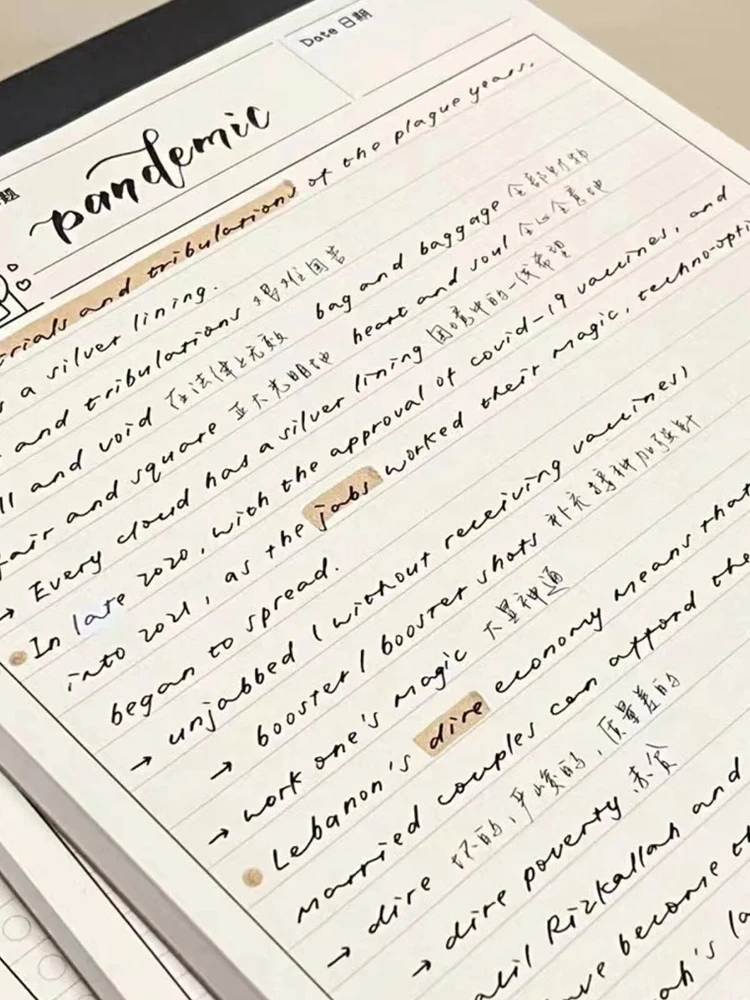 Date 日期
题
pandemic
trials and tribulations of the plague years.
a silver lining.
and tribulations 艰难困苦 bag and baggage 全部财物
and void 在法律上无效 heart and soul 全心全意地
fair and square 正大光明地
→ Every cloud has a silver lining 困境中的一线希望
In late 2020, with the approval of covid-19 vaccines, and
into 2021, as the jabs worked their magic, techno-opti
began to spread.
→ unjabbed (without receiving vaccines)
→ booster / booster shots 补充接种加强针
→ work one's magic 大显神通
Lebanon's dire economy means that
married couples can afford the
→ dire 坏的,严峻的,质量差的
→ dire poverty 赤贫
alil Rizkallah and
ave become
ah's la